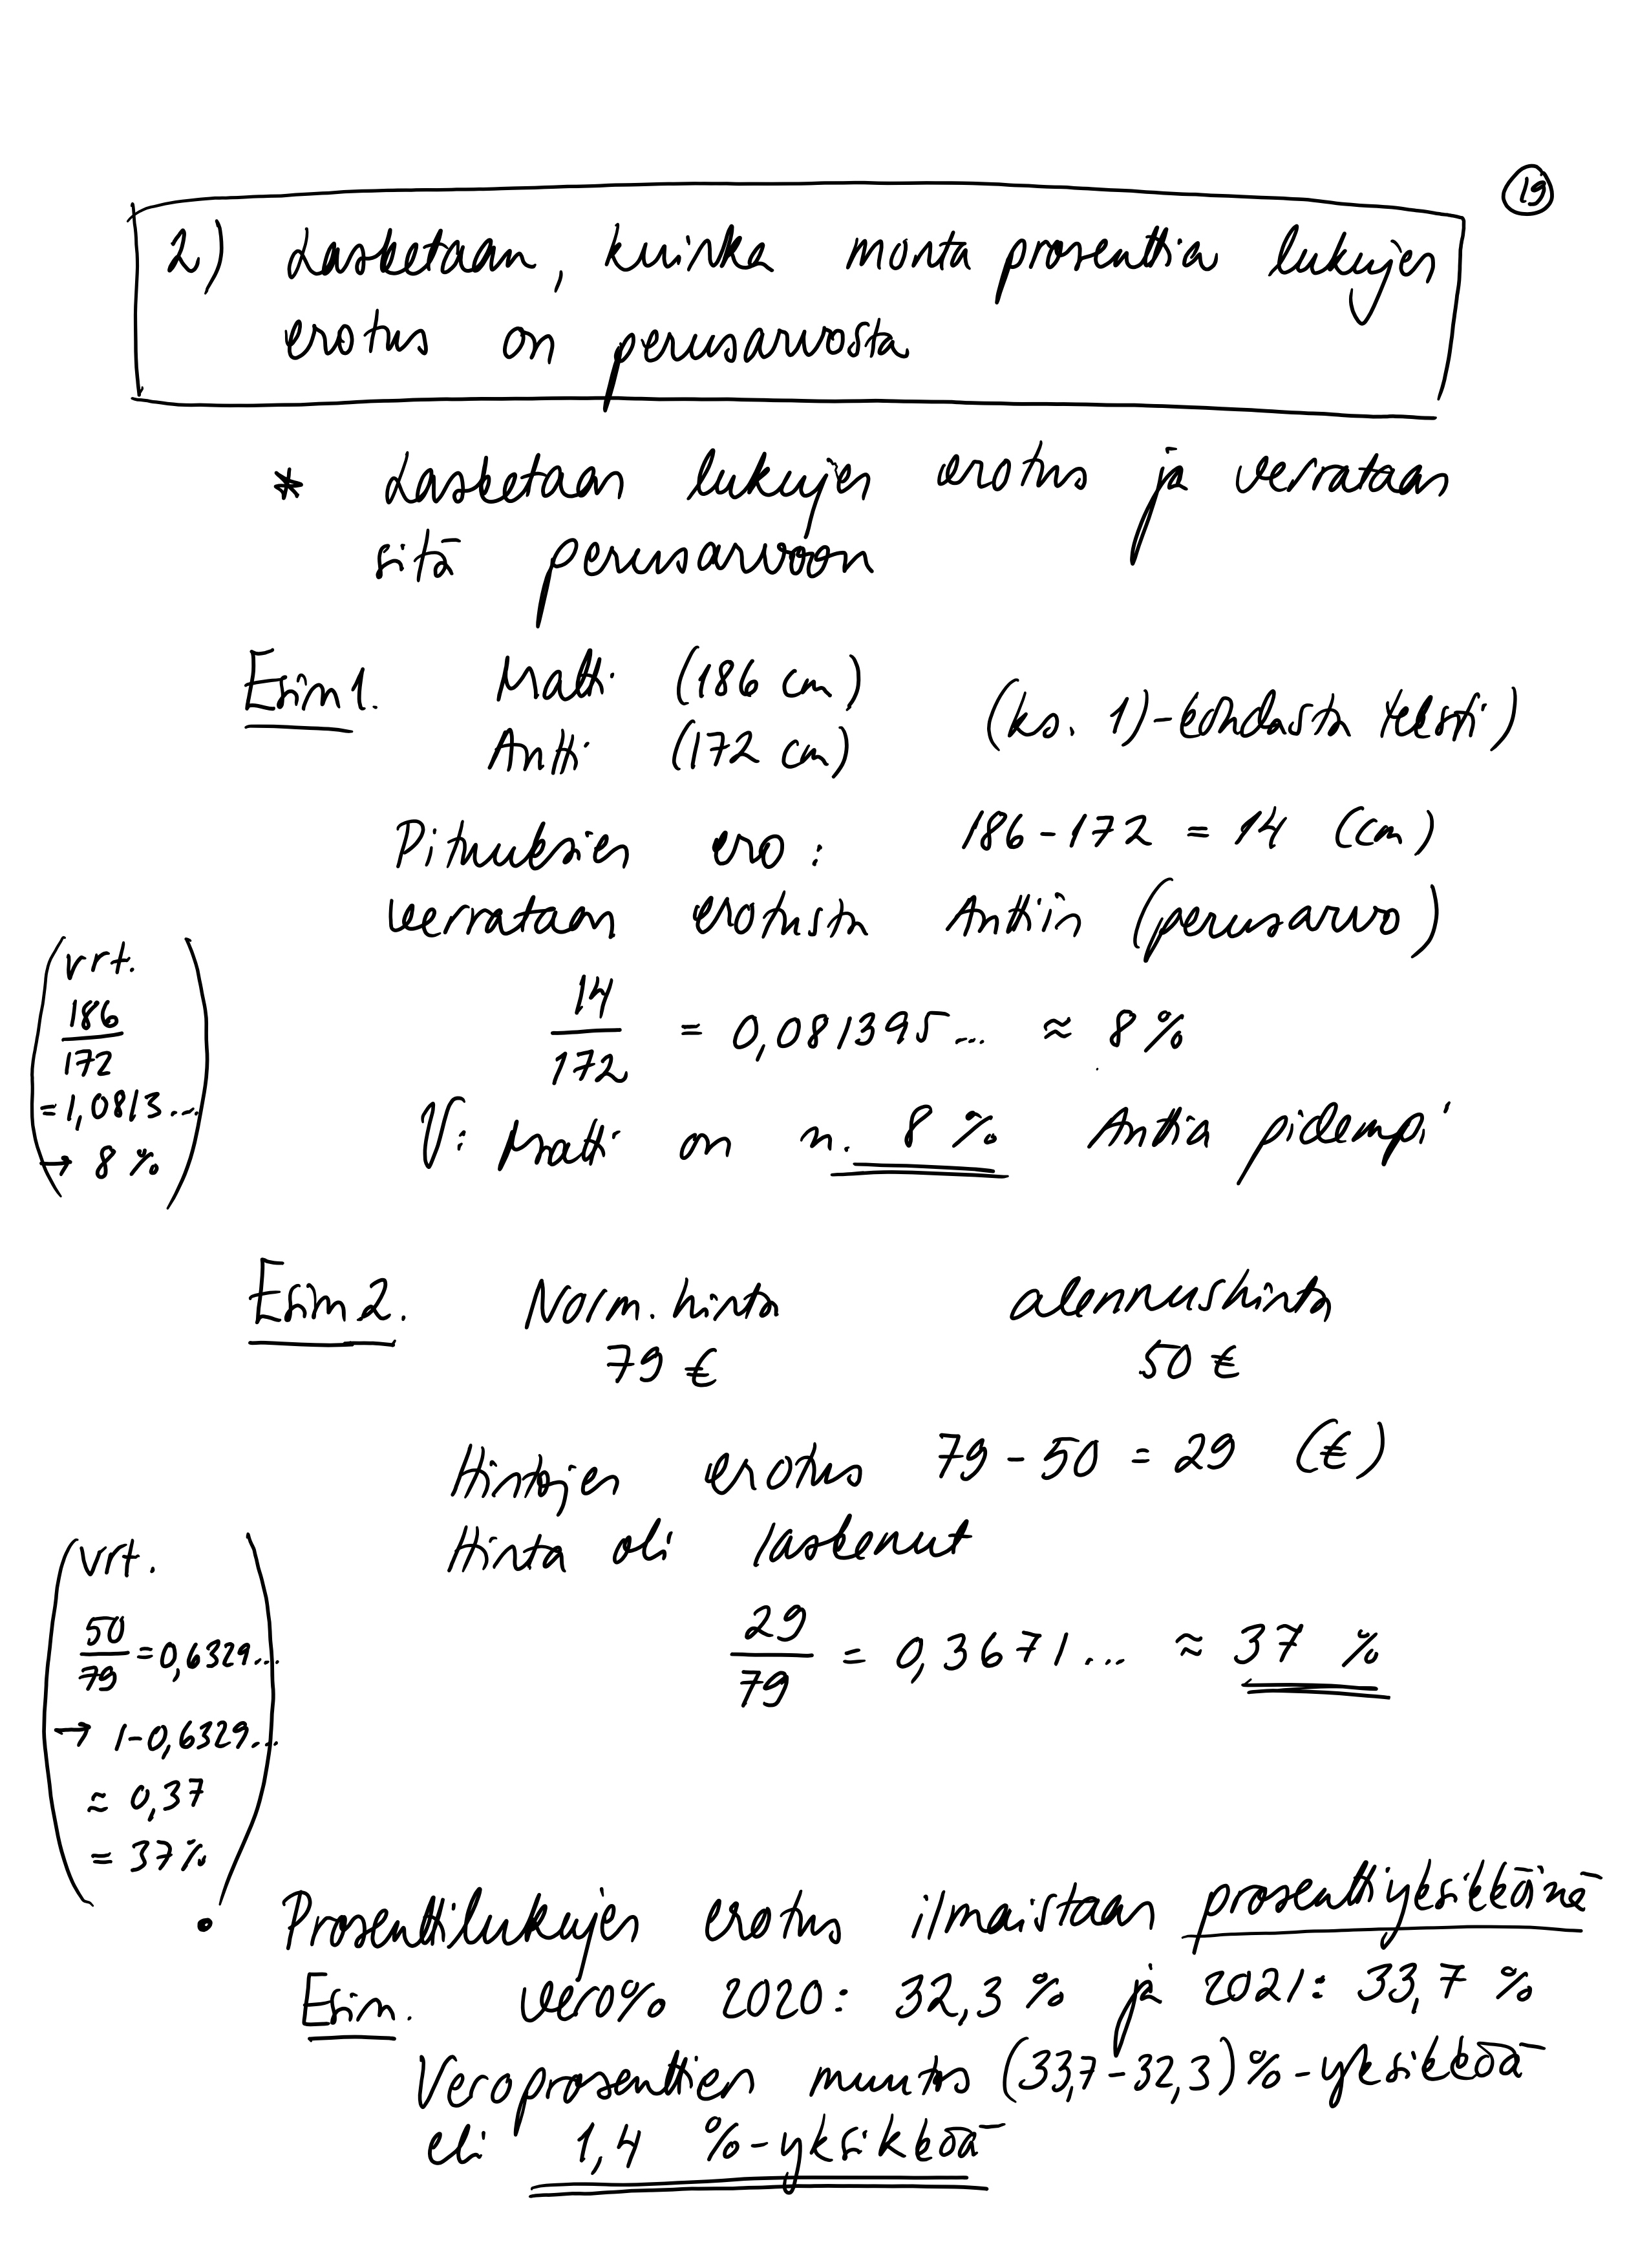 19
2) Lasketaan, kuinka monta prosenttia lukujen
erotus on perusarvosta
* Lasketaan lukujen erotus ja verrataan
sitä perusarvoon
Esim 1. Matti (186 cm)
(ks. 1)-kohdasta teksti)
Antti (172 cm)
Pituuksien ero: 186 - 172 = 14 (cm)
verrataan erotusta Anttiin (perusarvo)
14/172 = 0,081395... ≈ 8 %
V: Matti on n. 8 % Anttia pidempi
(vrt.
186/172
= 1,0813...
→ 8 %)
Esim 2. Norm. hinta alennushinta
79 € 50 €
Hintojen erotus 79 - 50 = 29 (€)
Hinta oli laskenut
29/79 = 0,3671... ≈ 37 %
(vrt.
50/79 = 0,6329...
→ 1-0,6329...
≈ 0,37
= 37%)
• Prosenttilukujen erotus ilmaistaan prosenttiyksikköinä
Esim. vero% 2020: 32,3 % ja 2021: 33,7 %
Veroprosenttien muutos (33,7-32,3)%-yksikköä
eli 1,4 %-yksikköä